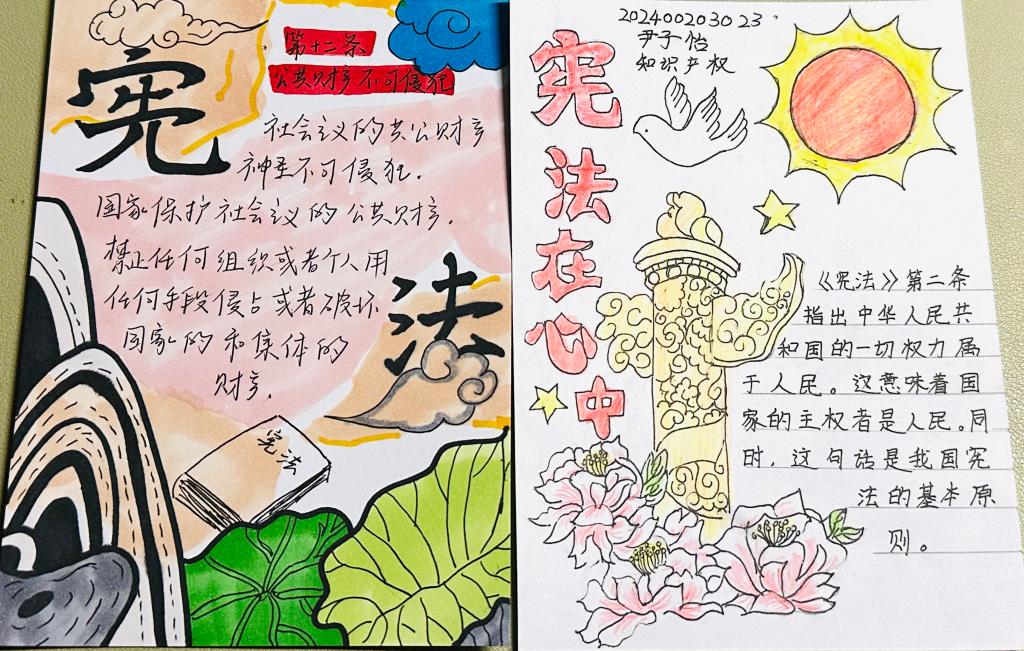 宪
第十二条
公共财产不可侵犯
社会主义的共公财产
神圣不可侵犯.
国家保护社会主义的公共财产.
禁止任何组织或者个人用
任何手段侵占或者破坏
国家的和集体的
财产.
法
宪法
202400203023
尹子怡
知识产权
宪法在心中
《宪法》第二条
指出中华人民共
和国的一切权力属
于人民。这意味着国
家的主权者是人民。同
时,这句话是我国宪
法的基本原
则。